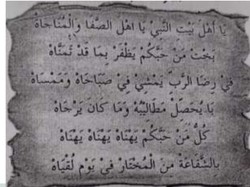 يَا أَهْلَ بَيْتِ النَّبِيْ يَا أَهْلَ الصَّفَا وَالْمُنَاجَاهْ
بَخْتْ مَنْ حَبَّكُمْ يَظْفَرْ بِمَا قَدْ تَمَنَّاهْ
فِي رِضَا الرَّبِّ يَمْشِيْ فِيْ صَبَاحَاهْ وَمَمْسَاهْ
بَا يُحَصِّلْ مَطَالِيْبَهْ وَمَا كَانَ يَرْجَاهْ
كُلُّ مَنْ حَبَّكُمْ يَهْنَاهْ يَهْنَاهْ يَهْنَاهْ
بِالشَّفَاعَةْ مِنَ الْمُخْتَارْ فِيْ يَوْمِ لُقْيَاهْ